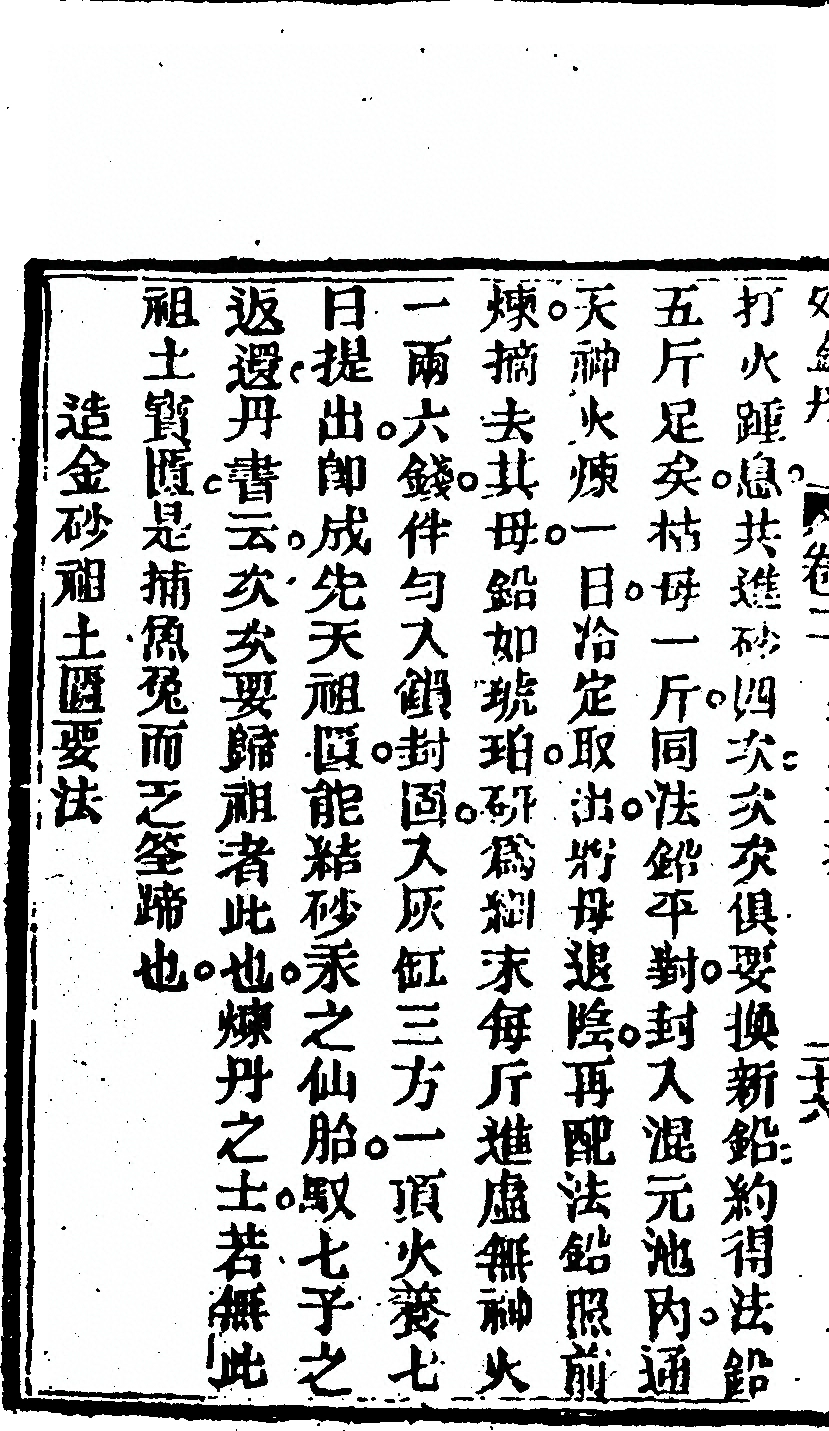 卷二
二十六
打火踵息共進砂四次次次俱要換新鉛約得法鉛
五斤足矣枯母一斤同法鉛平對封入混元池內通
天神火煉一日冷定取出將母退陰再配法鉛照前
煉摘去其母鉛如琥珀研爲細末每斤進虛無神火
一兩六錢伴勻入鍋封固入灰缸三方一頂火養七
日提出卽成先天祖匱能結砂汞之仙胎馭七子之
返還丹書云次次要歸祖者此也煉丹之士若無此
祖土寶匱是捕魚兔而乏筌蹄也
造金砂祖土匱要法